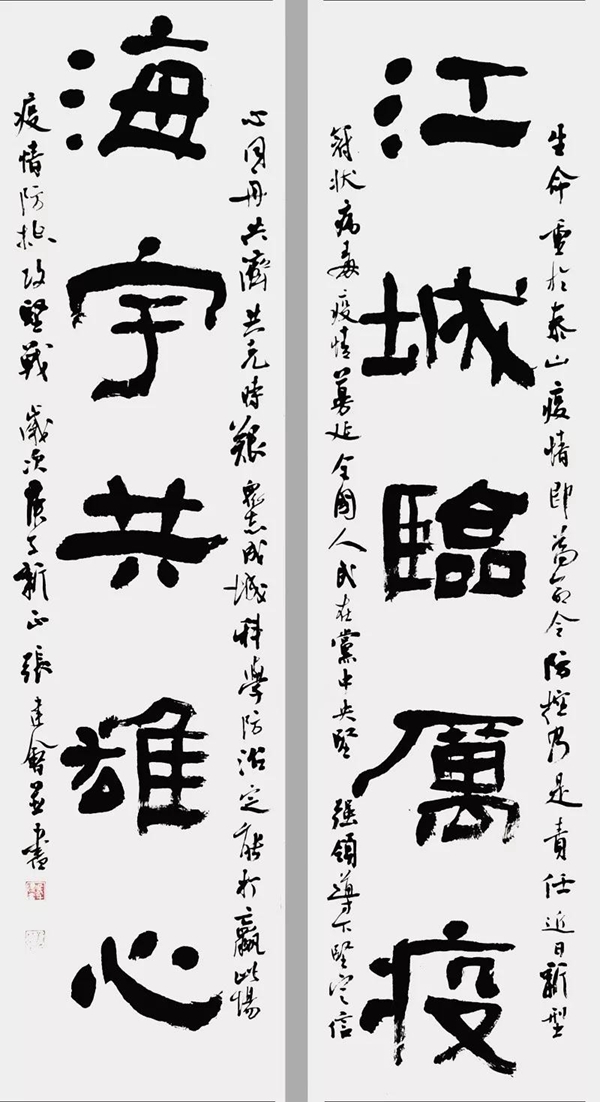 生命重於泰山疫情即為命令防控乃是責任近日新型
江城臨厲疫
冠狀病毒疫情蔓延全國人民在黨中央堅強領導下堅定信
心同舟共濟共克時艱眾志成城科學防治定能打贏此場
海宇共雄心
疫情防控攻堅戰 歲次庚子新正張建會並書